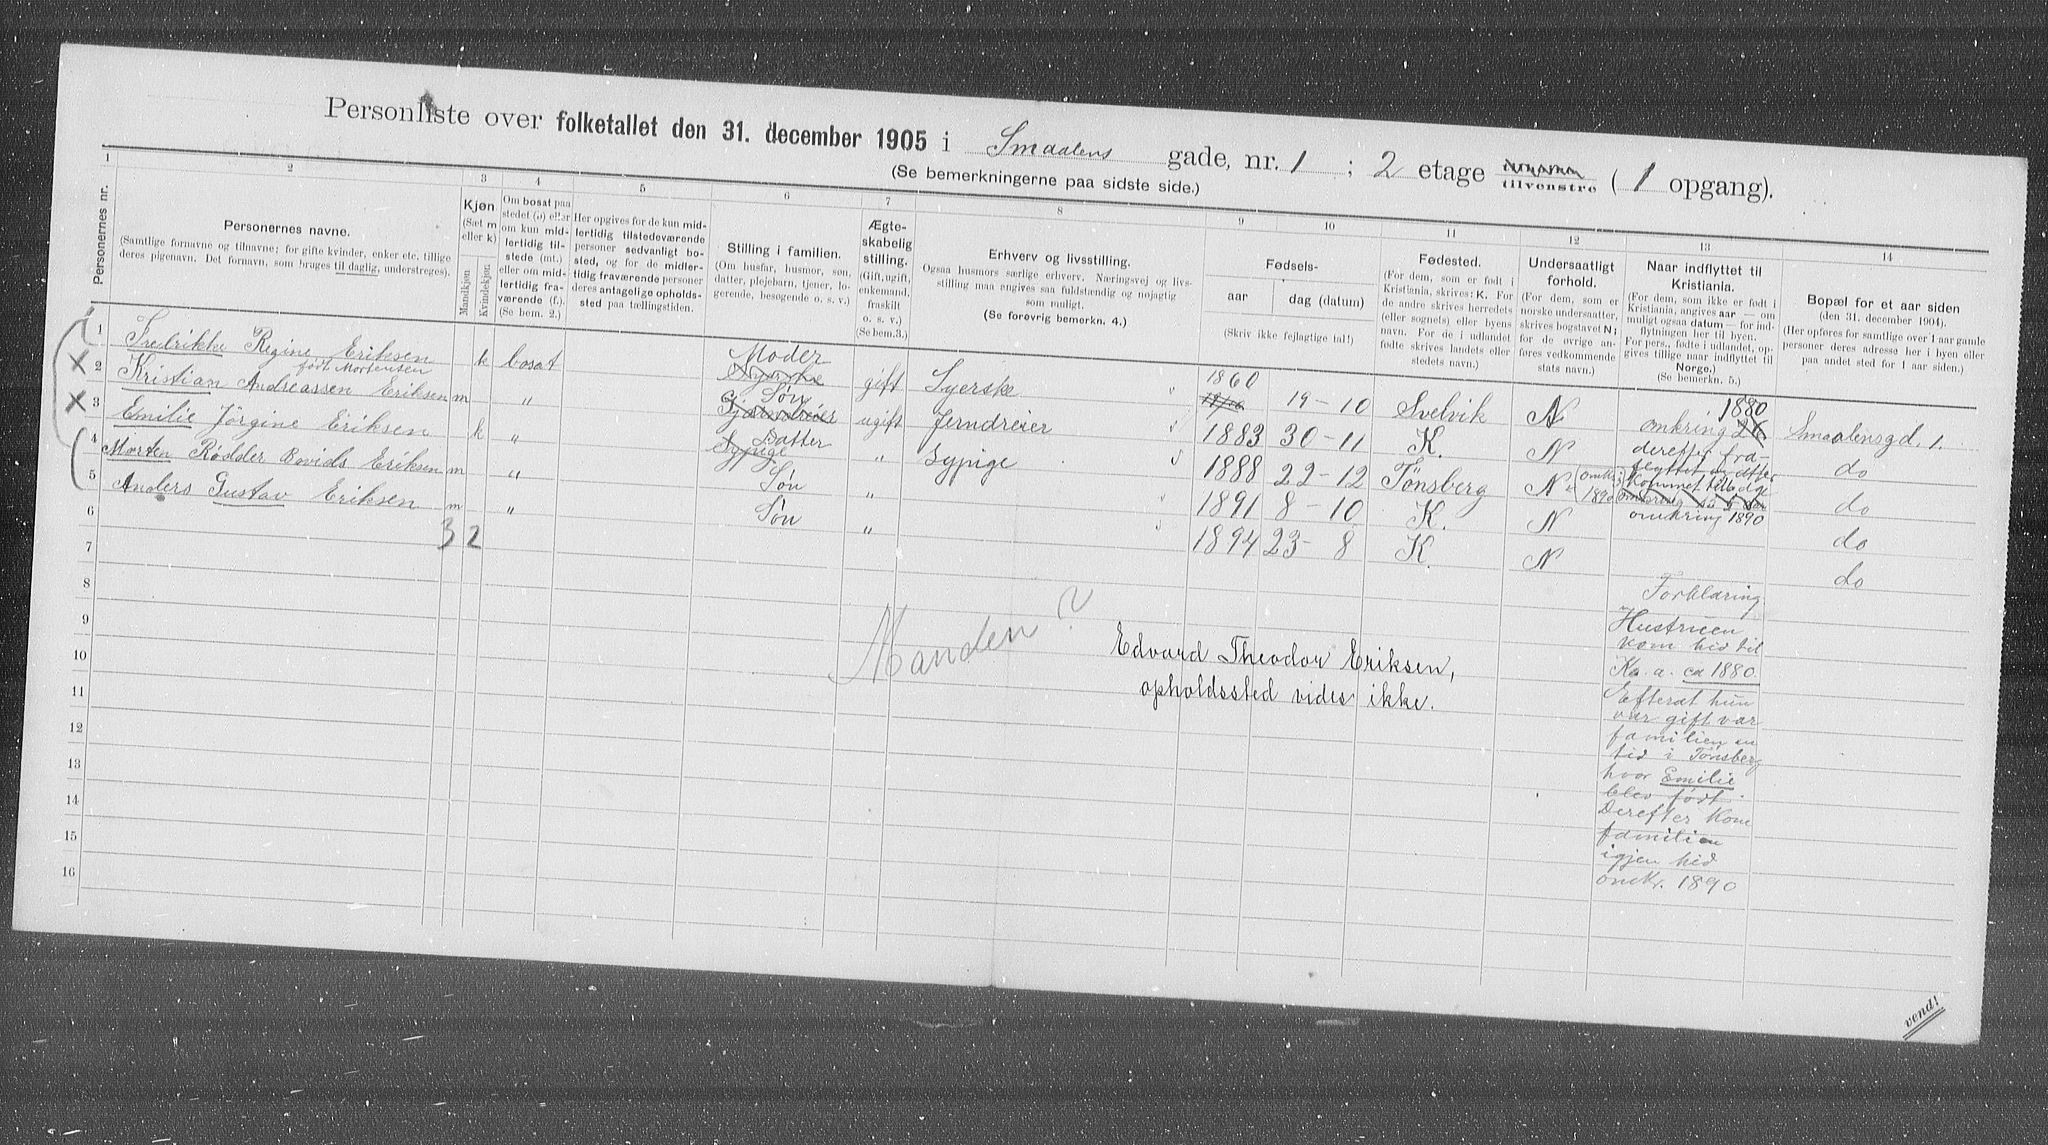 Personliste over folketallet den 31. december 1905 i Smaalens gade, nr. 1 ; 2 etage tilvenstre ( 1 opgang).
(Se bemerkningerne paa sidste side.)
1 2 3 4 5 6 7 8 9 10 11 12 13 14
Personernes nr.
Personernes navne.
(Samtlige fornavne og tilnavne; for gifte kvinder, enker etc. tillige
deres pigenavn. Det fornavn, som bruges til daglig, understreges).
Kjøn
(Sæt m
eller k)
Mandkjøn
Kvindekjøn
Om bosat paa
stedet (b) eller
om kun mid-
lertidig til-
stede (mt.)
eller om mid-
lertidig fra-
værende (f.).
(Se bem. 2.)
Her opgives for de kun mid-
lertidig tilstedeværende
personer sedvanligt bo-
sted, og for de midler-
tidig fraværende personer
deres antagelige opholds-
sted paa tællingstiden.
Stilling i familien.
(Om husfar, husmor, søn,
datter, plejebarn, tjener, lo-
gerende, besøgende o. s. v.)
Ægte-
skabelig
stilling.
(Gift, ugift,
enkemand,
fraskilt
o. s. v.)
(Se bem. 3.)
Erhverv og livsstilling.
Ogsaa husmors særlige erhverv. Næringsvej og livs-
stilling maa angives saa fuldstændig og nøjagtig
som muligt.
(Se forøvrig bemerkn. 4.)
Fødsels-
aar
dag (datum)
(Skriv ikke fejlagtige tal!)
Fødested.
(For dem, som er født i
Kristiania, skrives: K. For
de andre skrives herredets
(eller sognets) eller byens
navn. For de i udlandet
fødte skrives landets eller
stedets navn.)
Undersaatligt
forhold.
(For dem, som er
norske undersaatter,
skrives bogstavet N;
for de øvrige an-
føres vedkommende
stats navn.)
Naar indflyttet til
Kristiania.
(For dem, som ikke er født i
Kristiania, angives aar — om
muligt ogsaa datum — for ind-
flytningen her til byen.
For pers., fødte i udlandet, op-
gives tillige naar indflyttet til
Norge.)
(Se bemerkn. 5.)
Bopæl for et aar siden
(den 31. december 1904).
(Her opføres for samtlige over 1 aar gamle
personer deres adresse her i byen eller
paa andet sted for 1 aar siden.)
1 Fredrikke Regine Eriksen født Mortensen k bosat Moder gift Syerske 1860 19-10 Svelvik N omkring 1880 Smaalensgd. 1.
2 Kristian Andreassen Eriksen m " Søn ugift Jerndreier 1883 30-11 K. N do
3 Emilie Jörgine Eriksen k " Datter " Sypige 1888 22-12 Tönsberg N omkring 1890 do
4 Morten Rødder Bovids Eriksen m " Søn " 1891 8-10 K. N do
5 Anders Gustav Eriksen m " Søn " 1894 23-8 K. N do
6
3 2
7
8
9
10
11
12
13
14
15
16
Manden?
Edvard Theodor Eriksen,
opholdssted vides ikke.
Forklaring
Hustruen
kom hid til
Ka. a. ca 1880.
Efterat hun
var gift var
familien en
tid i Tönsberg
hvor Emilie
blev født.
Derefter kom
familien
igjen hid
omkr. 1890
vend!